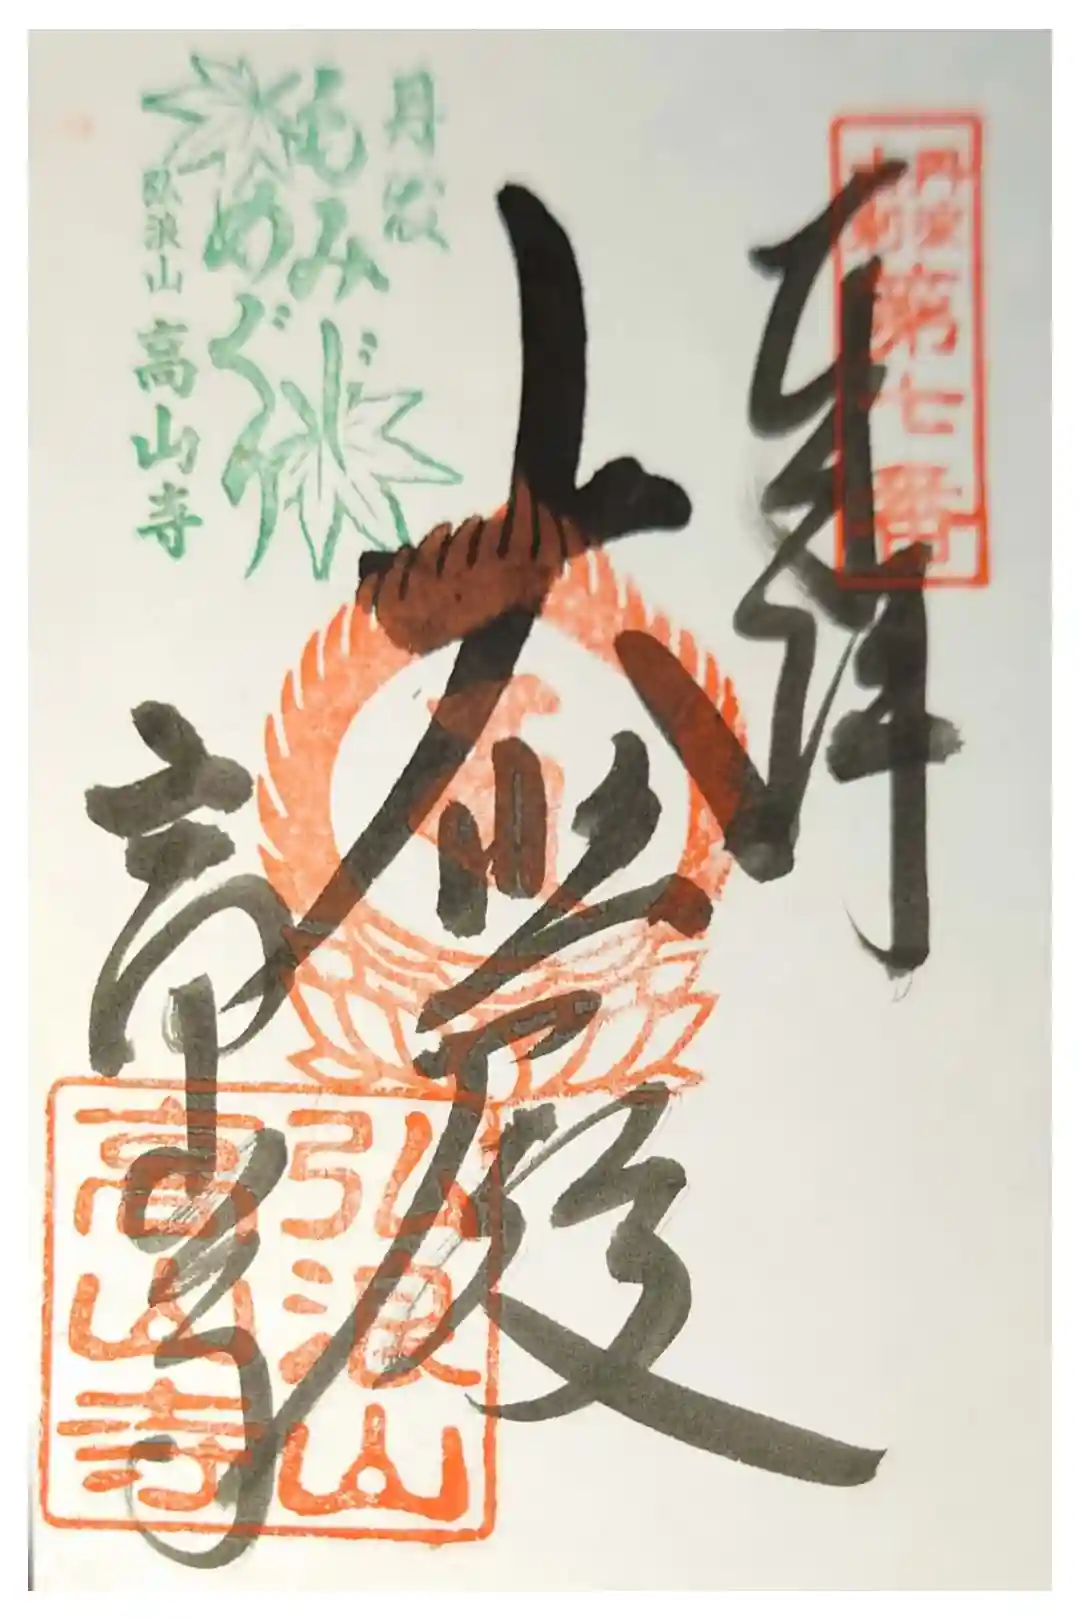 丹波
古刹
第七番
奉拝
大悲殿
高山寺
丹波
もみじ
めぐり
弘浪山 高山寺
弘浪山
高山寺